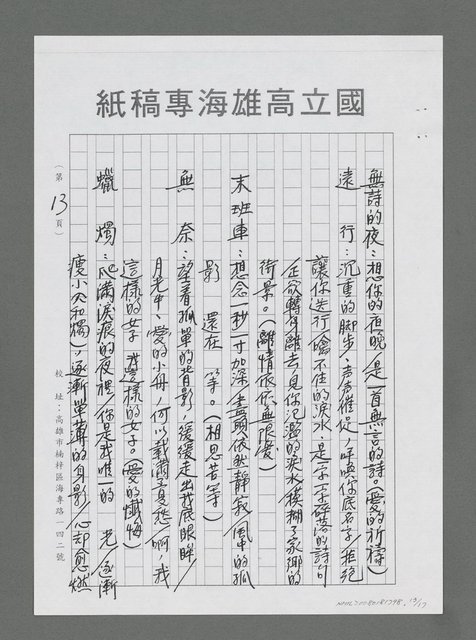 國立高雄海專稿紙
無詩的夜：想你的夜晚，是一首無言的詩。（愛的祈禱）
遠　行：沉重的腳步，聲聲催促，呼喚你底名字，拒絕
讓你送行，噙不住的淚水，是一字一字碎落的詩句
正欲轉身離去，見你氾濫的淚水模糊了家鄉的
街景。（離情依依無限愛）
末班車：想念一秒一寸加深，盡頭依然靜寂，風中的孤
影　還在　等。（相思苦等）
無　奈：望着孤單的背影，緩緩走出我底眼眸，
月光中，愛的小舟，何以載滿了哀愁，啊，我
這樣的女子，我這樣的女子。（愛的懺悔）
蠟　燭：爬滿淚痕的夜裡，你是我唯一的　光，逐漸
瘦小（火和燭），逐漸單薄的身影，心却愈燃
（第13頁）
校址：高雄市楠梓區海專路一四二號
13/17